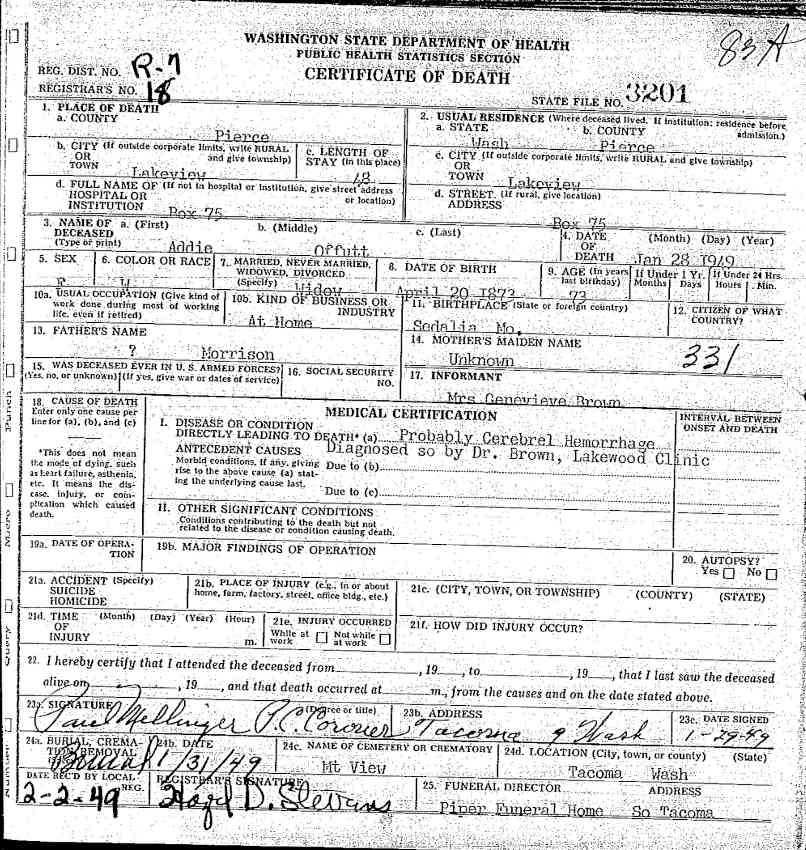 WASHINGTON STATE DEPARTMENT OF HEALTH
PUBLIC HEALTH STATISTICS SECTION
CERTIFICATE OF DEATH
83A
REG. DIST. NO. R-7
REGISTRAR'S NO. 18
STATE FILE NO. 3201
1. PLACE OF DEATH
a. COUNTY
Pierce
2. USUAL RESIDENCE (Where deceased lived. If institution: residence before admission.)
a. STATE b. COUNTY
Wash Pierce
b. CITY (If outside corporate limits, write RURAL and give township)
OR
TOWN Lakeview
c. LENGTH OF STAY (in this place)
48
c. CITY (If outside corporate limits, write RURAL and give township)
OR
TOWN Lakeview
d. FULL NAME OF (If not in hospital or institution, give street address or location)
HOSPITAL OR
INSTITUTION Box 75
d. STREET. (If rural, give location)
ADDRESS
Box 75
3. NAME OF DECEASED (Type or print)
a. (First) b. (Middle) c. (Last)
Addie Offutt
4. DATE OF DEATH (Month) (Day) (Year)
Jan 28 1949
5. SEX
F
6. COLOR OR RACE
W
7. MARRIED, NEVER MARRIED, WIDOWED, DIVORCED (Specify)
Widow
8. DATE OF BIRTH
April 20 1873
9. AGE (In years last birthday)
73
If Under 1 Yr. Months Days
If Under 24 Hrs. Hours Min.
10a. USUAL OCCUPATION (Give kind of work done during most of working life, even if retired)
10b. KIND OF BUSINESS OR INDUSTRY
At Home
11. BIRTHPLACE (State or foreign country)
Sedalia Mo.
12. CITIZEN OF WHAT COUNTRY?
13. FATHER'S NAME
? Morrison
14. MOTHER'S MAIDEN NAME
Unknown
331
15. WAS DECEASED EVER IN U. S. ARMED FORCES?
(Yes, no, or unknown) (If yes, give war or dates of service)
16. SOCIAL SECURITY NO.
17. INFORMANT
Mrs Genevieve Brown
18. CAUSE OF DEATH
Enter only one cause per line for (a), (b), and (c)
*This does not mean the mode of dying, such as heart failure, asthenia, etc. It means the disease, injury, or complication which caused death.
MEDICAL CERTIFICATION
INTERVAL BETWEEN ONSET AND DEATH
I. DISEASE OR CONDITION
DIRECTLY LEADING TO DEATH* (a) Probably Cerebrel Hemorrhage
Diagnosed so by Dr. Brown, Lakewood Clinic
ANTECEDENT CAUSES
Morbid conditions, if any, giving rise to the above cause (a) stating the underlying cause last.
Due to (b)
Due to (c)
11. OTHER SIGNIFICANT CONDITIONS
Conditions contributing to the death but not related to the disease or condition causing death.
19a. DATE OF OPERATION
19b. MAJOR FINDINGS OF OPERATION
20. AUTOPSY?
Yes No
21a. ACCIDENT (Specify)
SUICIDE
HOMICIDE
21b. PLACE OF INJURY (e.g., in or about home, farm, factory, street, office bldg., etc.)
21c. (CITY, TOWN, OR TOWNSHIP) (COUNTY) (STATE)
21d. TIME OF INJURY (Month) (Day) (Year) (Hour) m.
21e. INJURY OCCURRED
While at work Not while at work
21f. HOW DID INJURY OCCUR?
22. I hereby certify that I attended the deceased from , 19 , to , 19 , that I last saw the deceased
alive on , 19 , and that death occurred at m., from the causes and on the date stated above.
23a. SIGNATURE (Degree or title)
Paul Mellinger P.C. Coroner
23b. ADDRESS
Tacoma 9 Wash
23c. DATE SIGNED
1-29-49
24a. BURIAL, CREMATION, REMOVAL
Burial
24b. DATE
1/31/49
24c. NAME OF CEMETERY OR CREMATORY
Mt View
24d. LOCATION (City, town, or county) (State)
Tacoma Wash
DATE REC'D BY LOCAL REG.
2-2-49
REGISTRAR'S SIGNATURE
Hazel D. Stevens
25. FUNERAL DIRECTOR ADDRESS
Piper Funeral Home So Tacoma